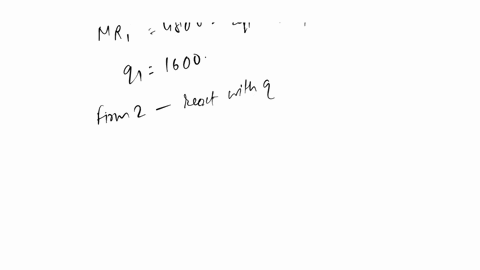 MR₁ = 4800
q₁ = 1600.
firm 2 – react with q